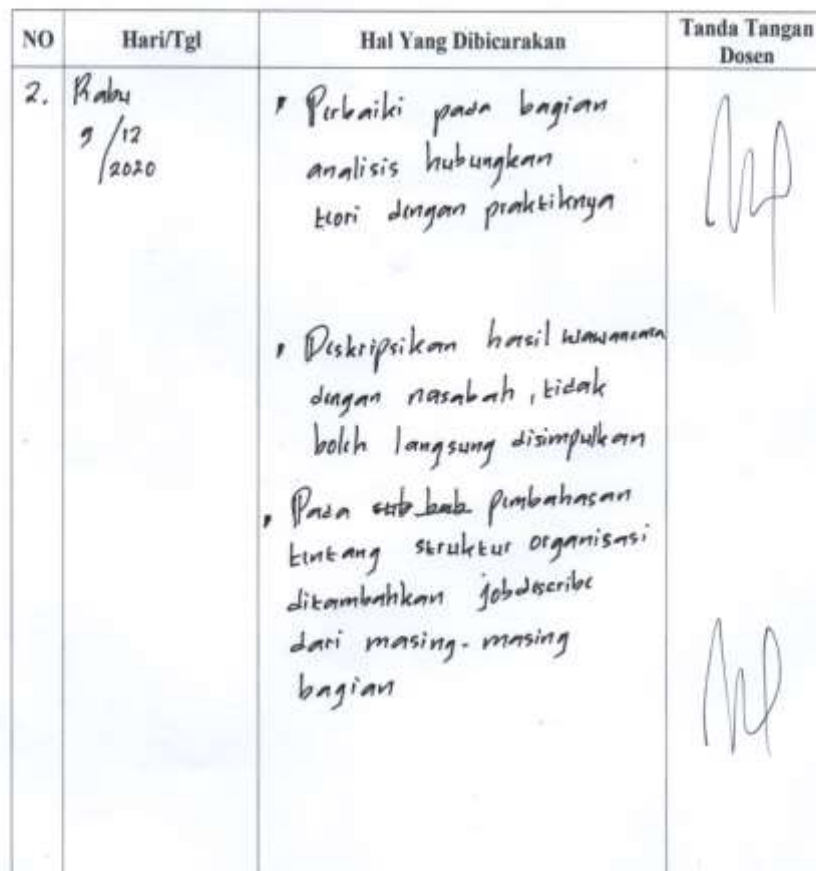 NO Hari/Tgl Hal Yang Dibicarakan Tanda Tangan
Dosen
2. Rabu
9/12
2020
Perbaiki pada bagian
analisis hubungkan
teori dengan praktiknya
Deskripsikan hasil wawancara
dengan nasabah, tidak
boleh langsung disimpulkan
Pada sub bab pembahasan
tentang struktur organisasi
ditambahkan jobdescribe
dari masing-masing
bagian